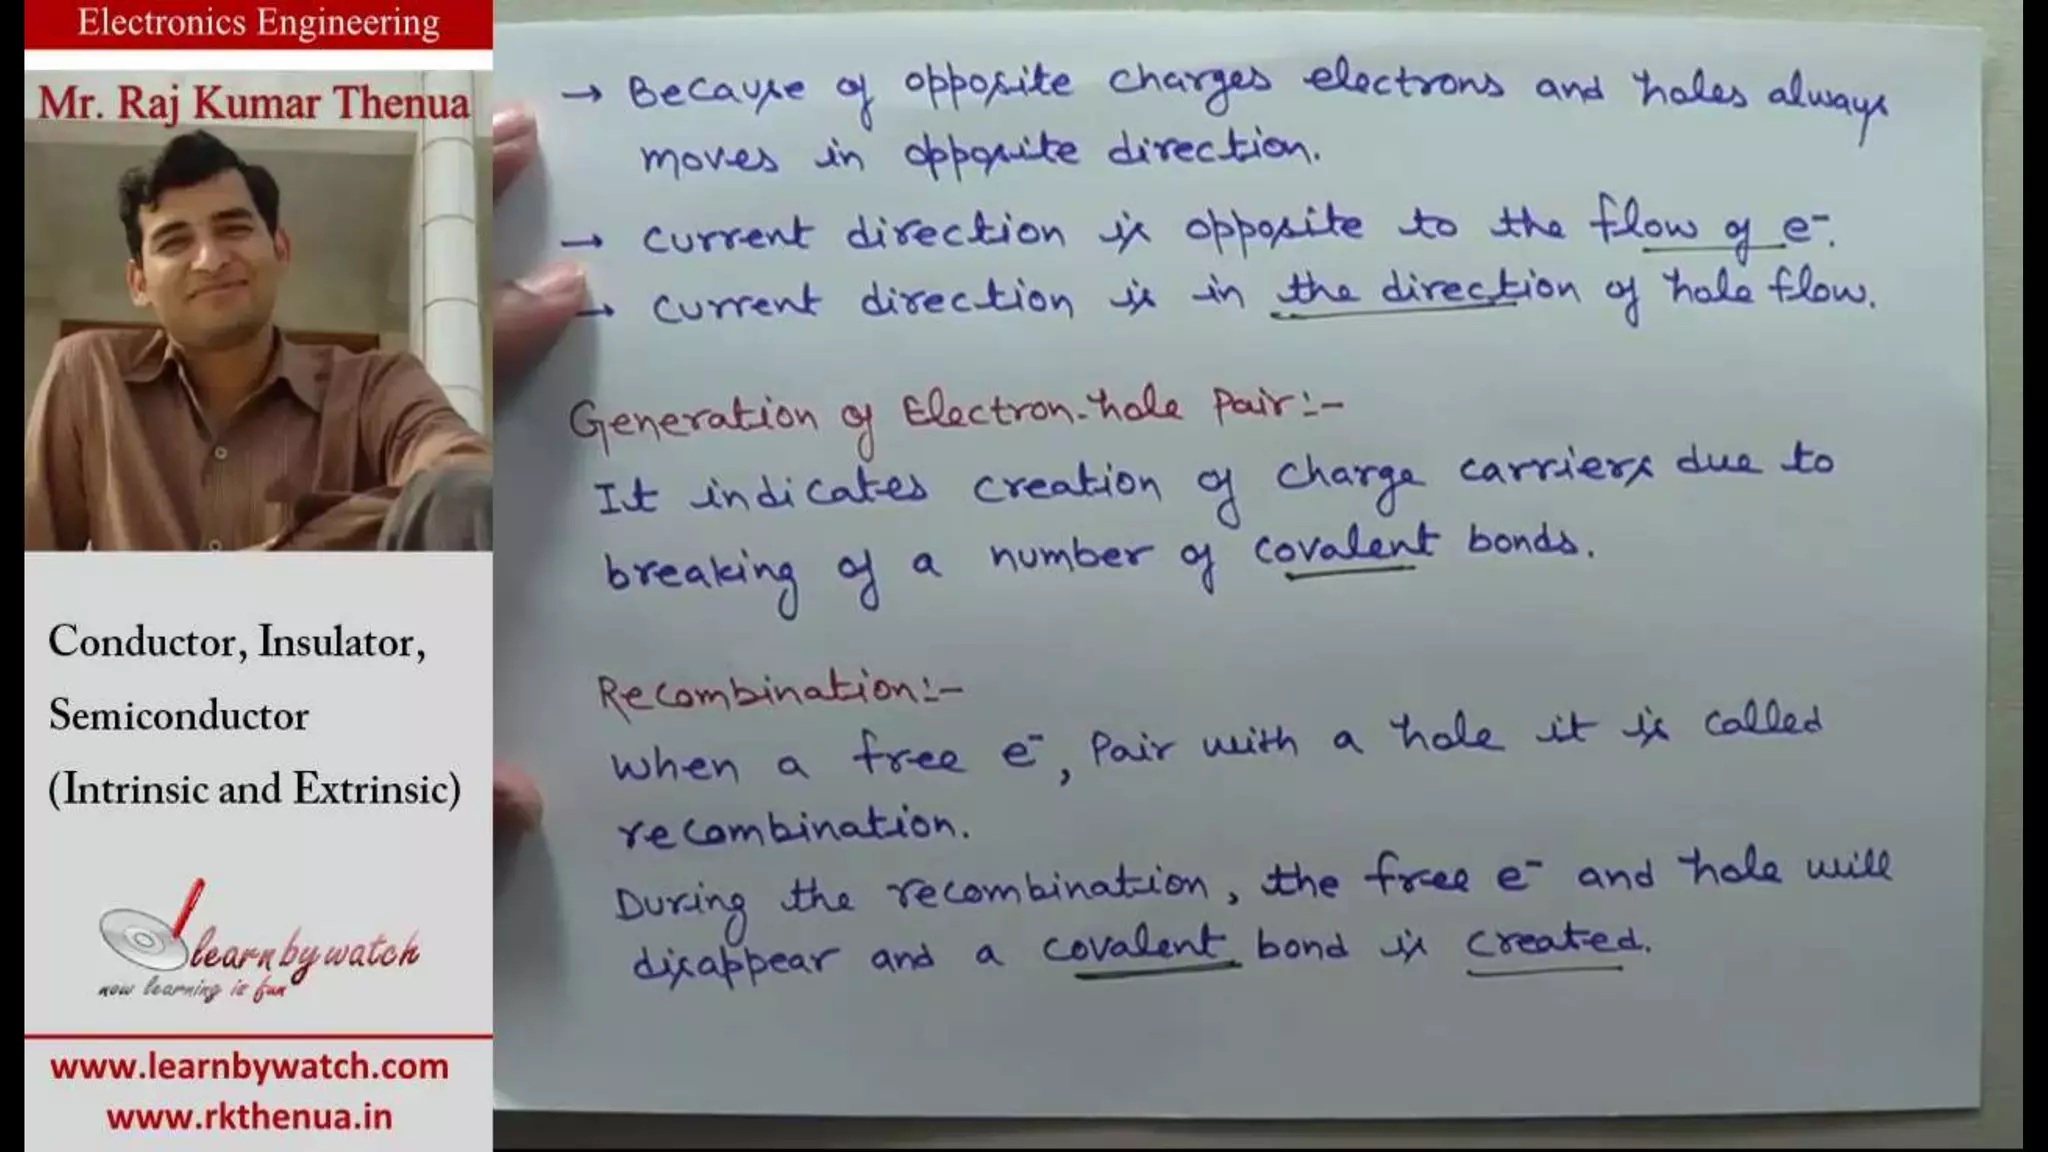 Electronics Engineering
Mr. Raj Kumar Thenua
Conductor, Insulator,
Semiconductor
(Intrinsic and Extrinsic)
learnbywatch
now learning is fun
www.learnbywatch.com
www.rkthenua.in
→ Because of opposite charges electrons and holes always
moves in opposite direction.
→ current direction is opposite to the flow of e⁻.
→ current direction is in the direction of hole flow.
Generation of Electron-hole Pair:-
It indicates creation of charge carriers due to
breaking of a number of covalent bonds.
Recombination:-
When a free e⁻, Pair with a hole it is called
recombination.
During the recombination, the free e⁻ and hole will
disappear and a covalent bond is created.